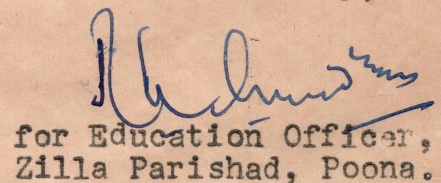 for Education Officer,
Zilla Parishad, Poona.